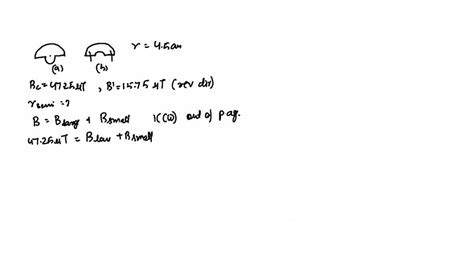 (a) (b) r = 4.5cm
Bc = 47.25 μT , B' = 15.75 μT (rev dir)
r semi = ?
B = Blarg + Bsmall (CCW) out of pag.
47.25 μT = Blar + Bsmall